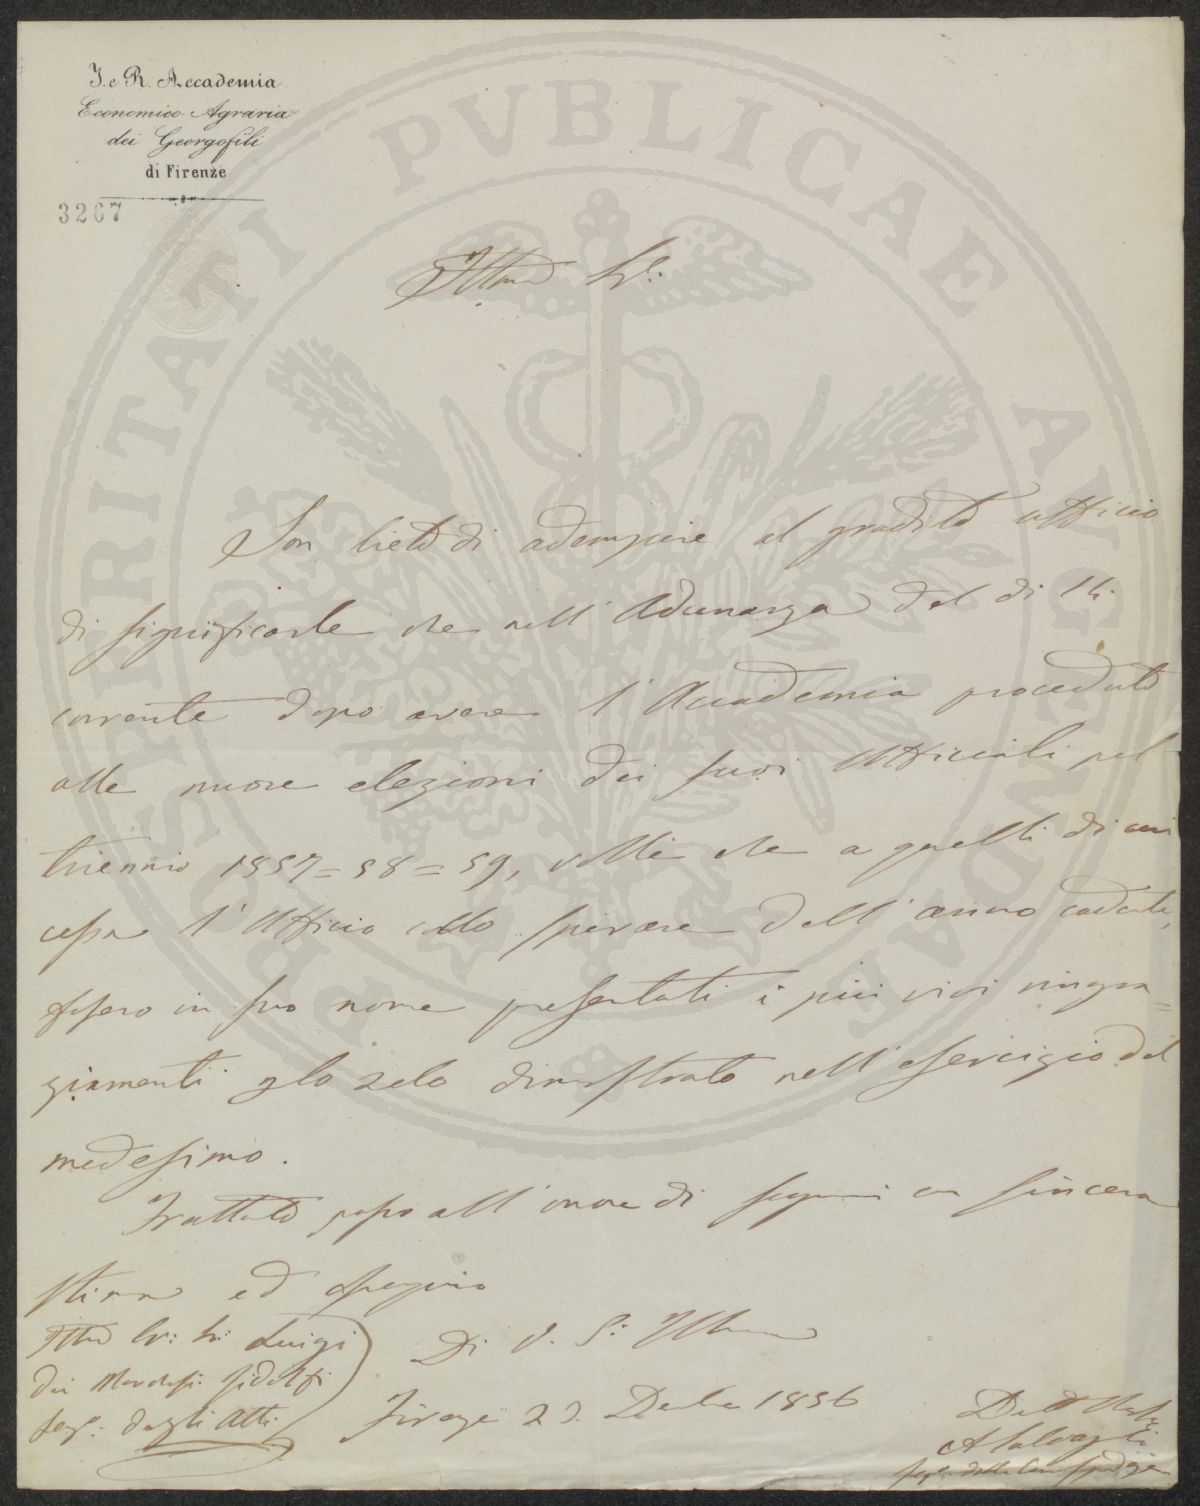 I. e R. Accademia
Economico-Agraria
dei Georgofili
di Firenze
3267
PROSPERITATI PVBLICAE AVGENDAE
Illmo Sig.
Son lieto di adempiere al gradito ufficio
di significarle che nell' Adunanza del dì 14
corrente dopo avere l' Accademia proceduto
alle nuove elezioni dei suoi Ufficiali pel
triennio 1857=58=59, volle che a quelli di cui
cessa l' Ufficio collo spirare dell' anno cadente,
fossero in suo nome presentati i più vivi ringra=
ziamenti p lo zelo dimostrato nell' esercizio del
medesimo.
Frattanto passo all' onore di segnarmi con sincera
stima ed ossequio
Di V. S. Illma
Illmo Sig: Luigi
dei Marchesi Ridolfi
Seg: degli Atti
Firenze Decbre 1856
Dev
A Salvagnoli
Seg. delle Corrispondenze